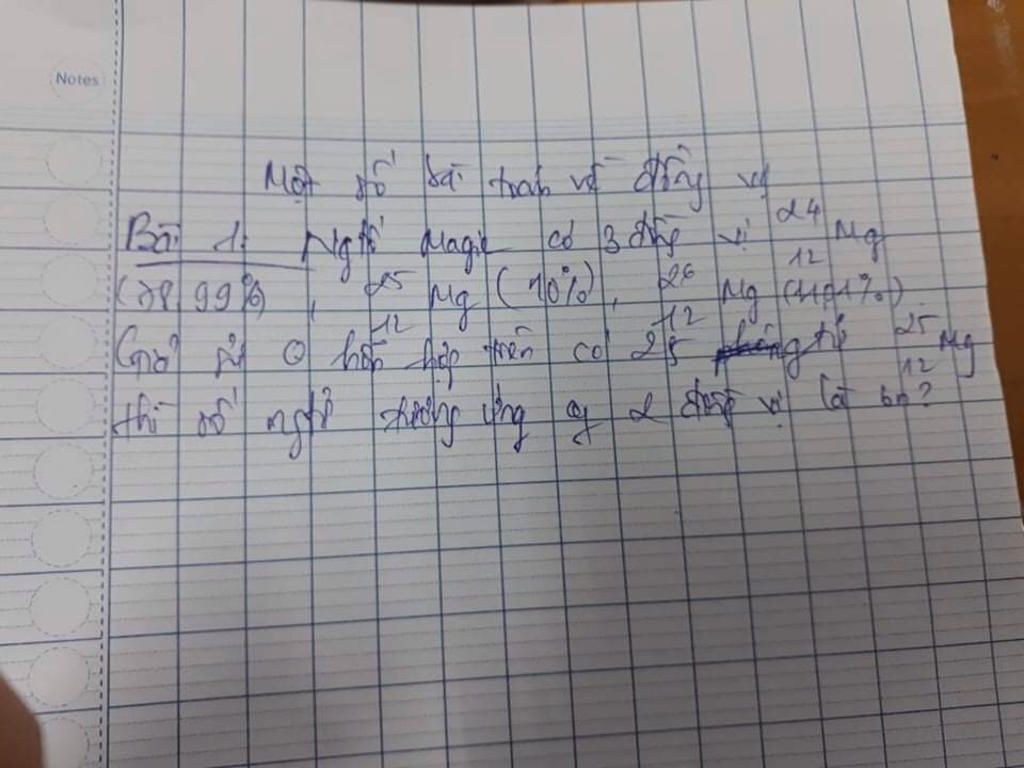 Notes
Một số bài toán về đồng vị
Bài 1: Ngtố Magie có 3 đồng vị 24 12 Mg
(78,99%), 25 12 Mg (10%), 26 12 Mg (11,01%).
Giả sử hỗn hợp trên có 25 ngtử 25 12 Mg
thì số ngtử tương ứng of 2 đồng vị còn lại bn?